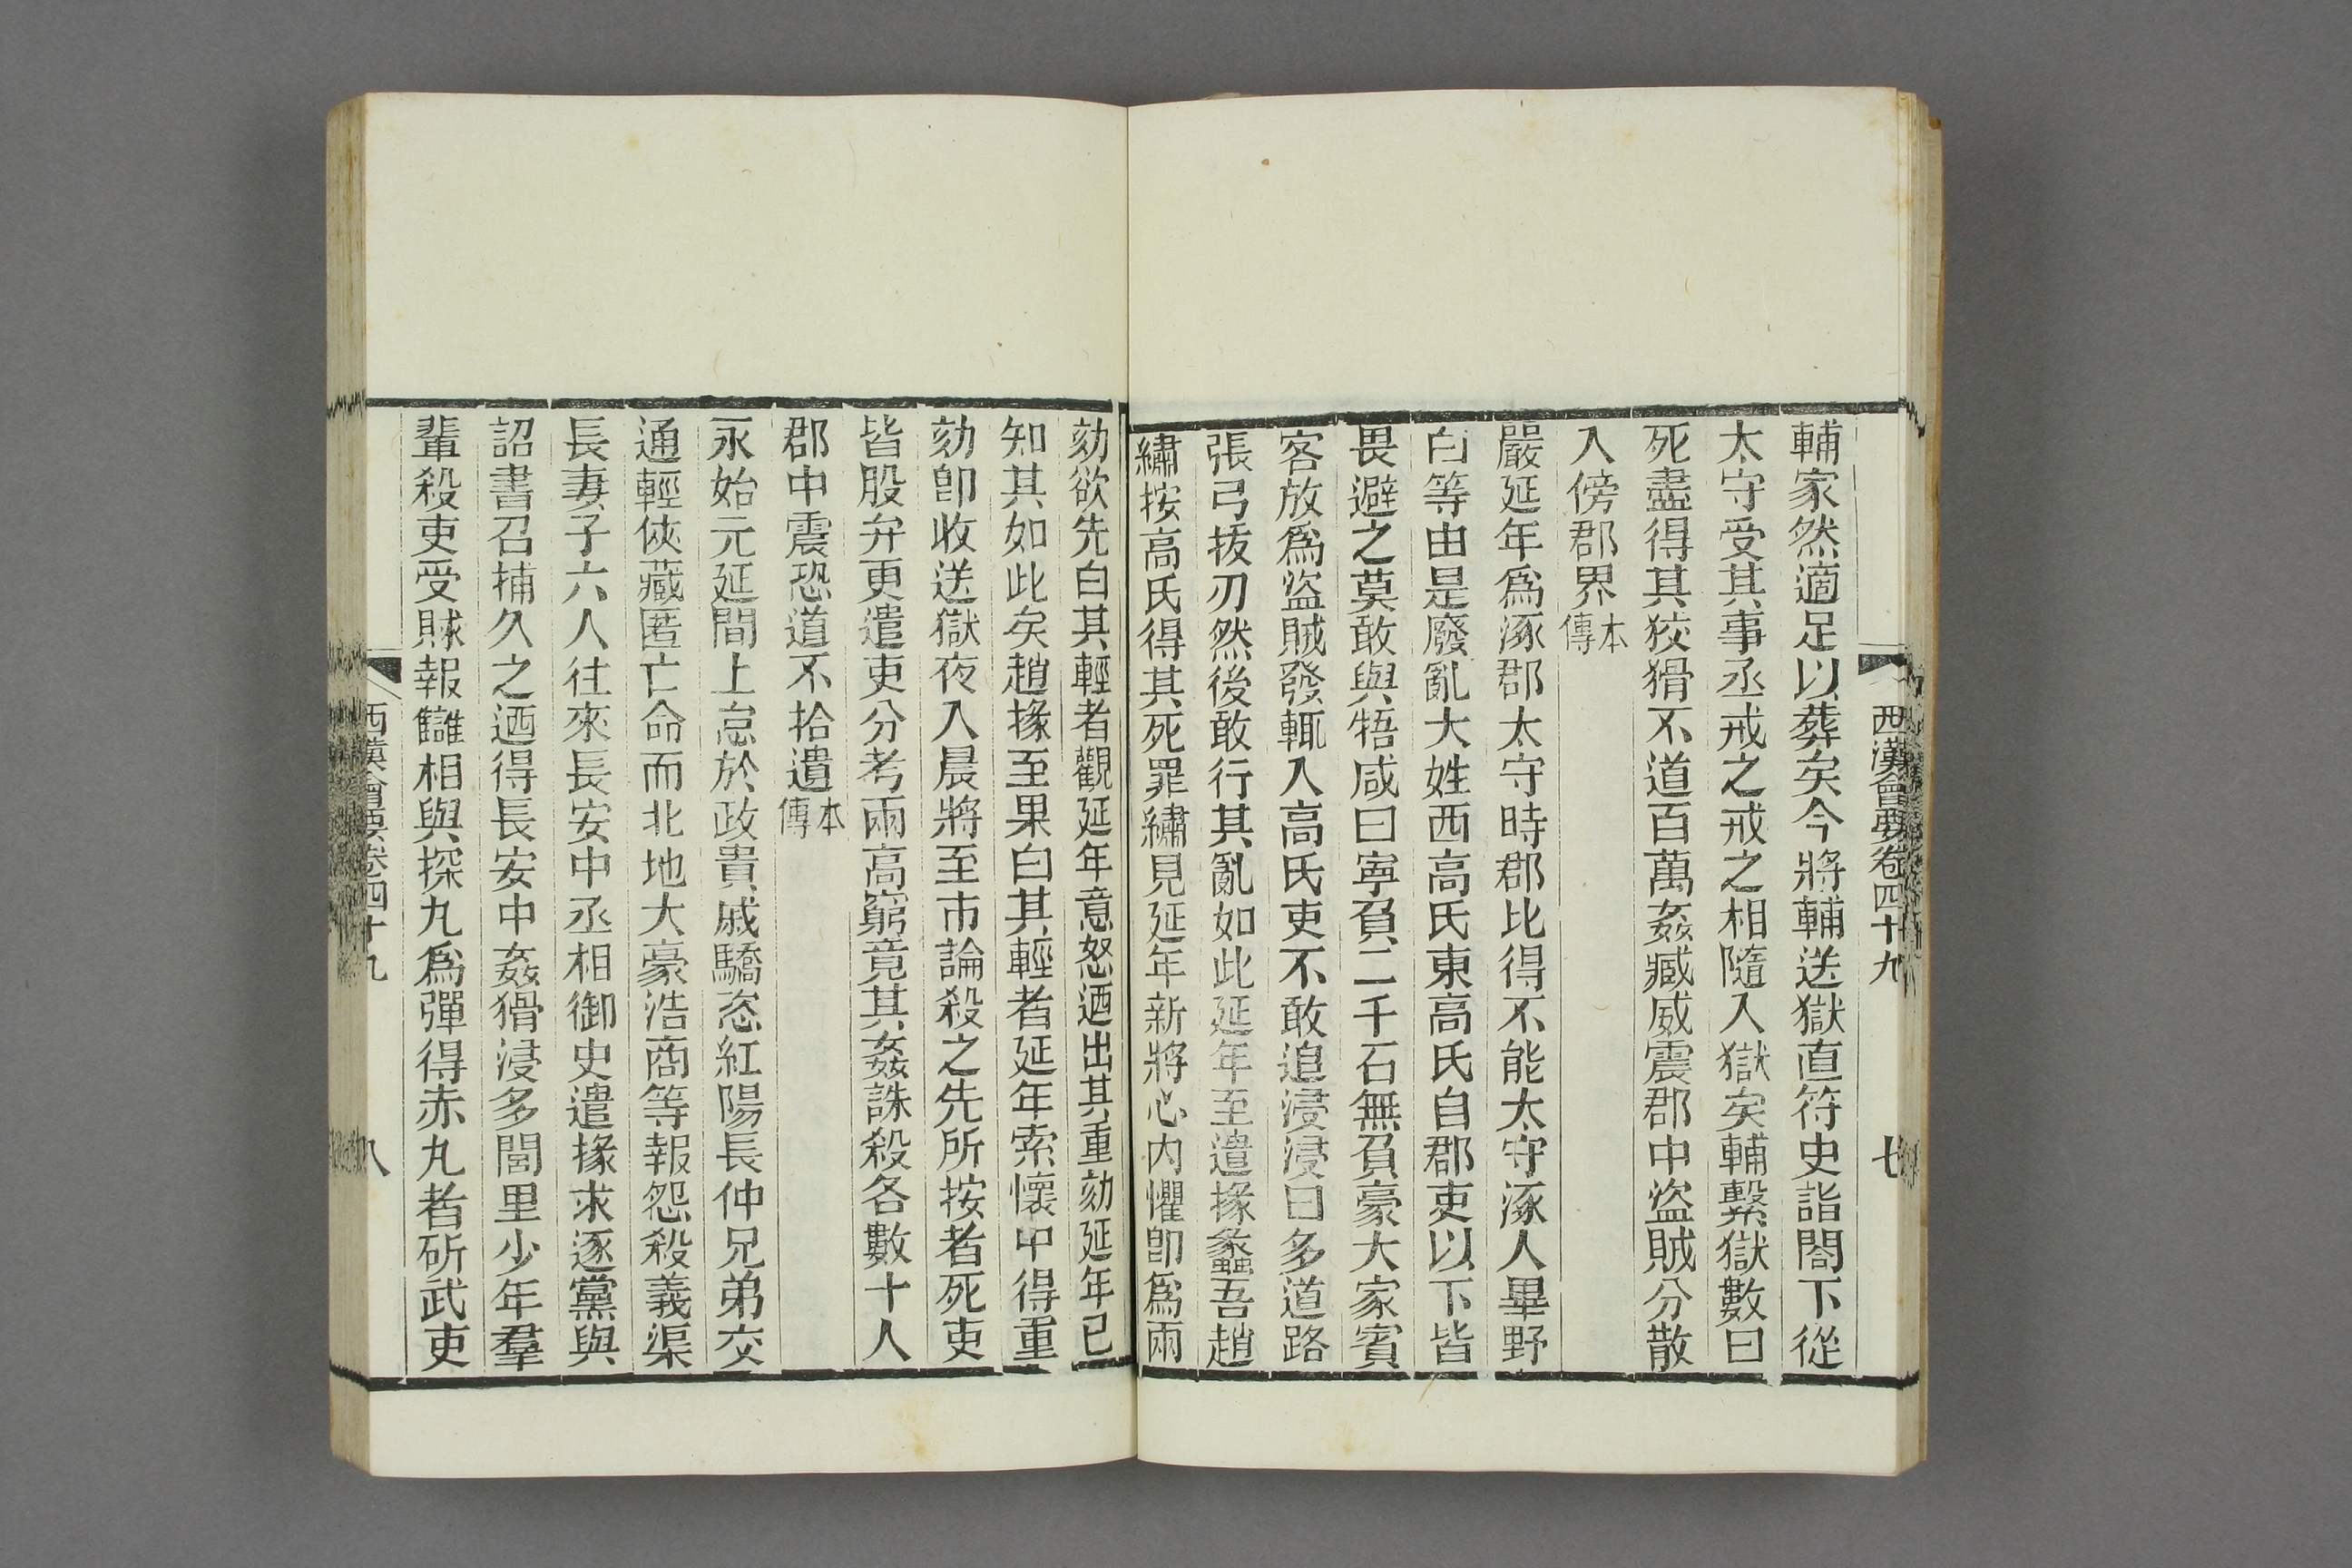 西漢會要卷四十九
七
輔家然適足以葬矣今將輔送獄直符史詣閤下從
太守受其事丞戒之戒之相隨入獄矣輔繫獄數日
死盡得其狡猾不道百萬姦臧威震郡中盜賊分散
入傍郡界本傳
嚴延年爲涿郡太守時郡比得不能太守涿人畢野
白等由是廢亂大姓西高氏東高氏自郡吏以下皆
畏避之莫敢與牾咸曰寧負二千石無負豪大家賓
客放爲盜賊發輒入高氏吏不敢追浸浸日多道路
張弓拔刃然後敢行其亂如此延年至遣掾蠡吾趙
繡按高氏得其死罪繡見延年新將心内懼卽爲兩
劾欲先白其輕者觀延年意怒迺出其重劾延年已
知其如此矣趙掾至果白其輕者延年索懷中得重
劾卽收送獄夜入晨將至市論殺之先所按者死吏
皆股弁更遣吏分考兩高窮竟其姦誅殺各數十人
郡中震恐道不拾遺本傳
永始元延間上怠於政貴戚驕恣紅陽長仲兄弟交
通輕俠藏匿亡命而北地大豪浩商等報怨殺義渠
長妻子六人往來長安中丞相御史遣掾求逐黨與
詔書召捕久之迺得長安中姦猾浸多閭里少年羣
輩殺吏受賕報讎相與探丸爲彈得赤丸者斫武吏
西漢會要卷四十九
八